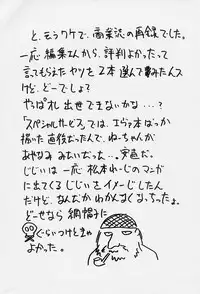 と、モウワケで、商業誌の再録でした。
一応 編集さんから、評判よかったって
言てもらえた ヤツを2本 選んでみたんス
けど、どーでしょ?
やっぱオレ 出世できないかな…?
「スペシャルサービス」では、エヴァ本ばっか
描った直後だったんで、ねーちゃんが
あやなみ みたいだった…。安直だ。
じじいは 一応 松本れーじのマンガ
に出てくる じじいを イメージしたん
だけど、なんだか わかんなくなっちったょ。
どーせなら 網帽子に
くらいつけときゃ
よかった。